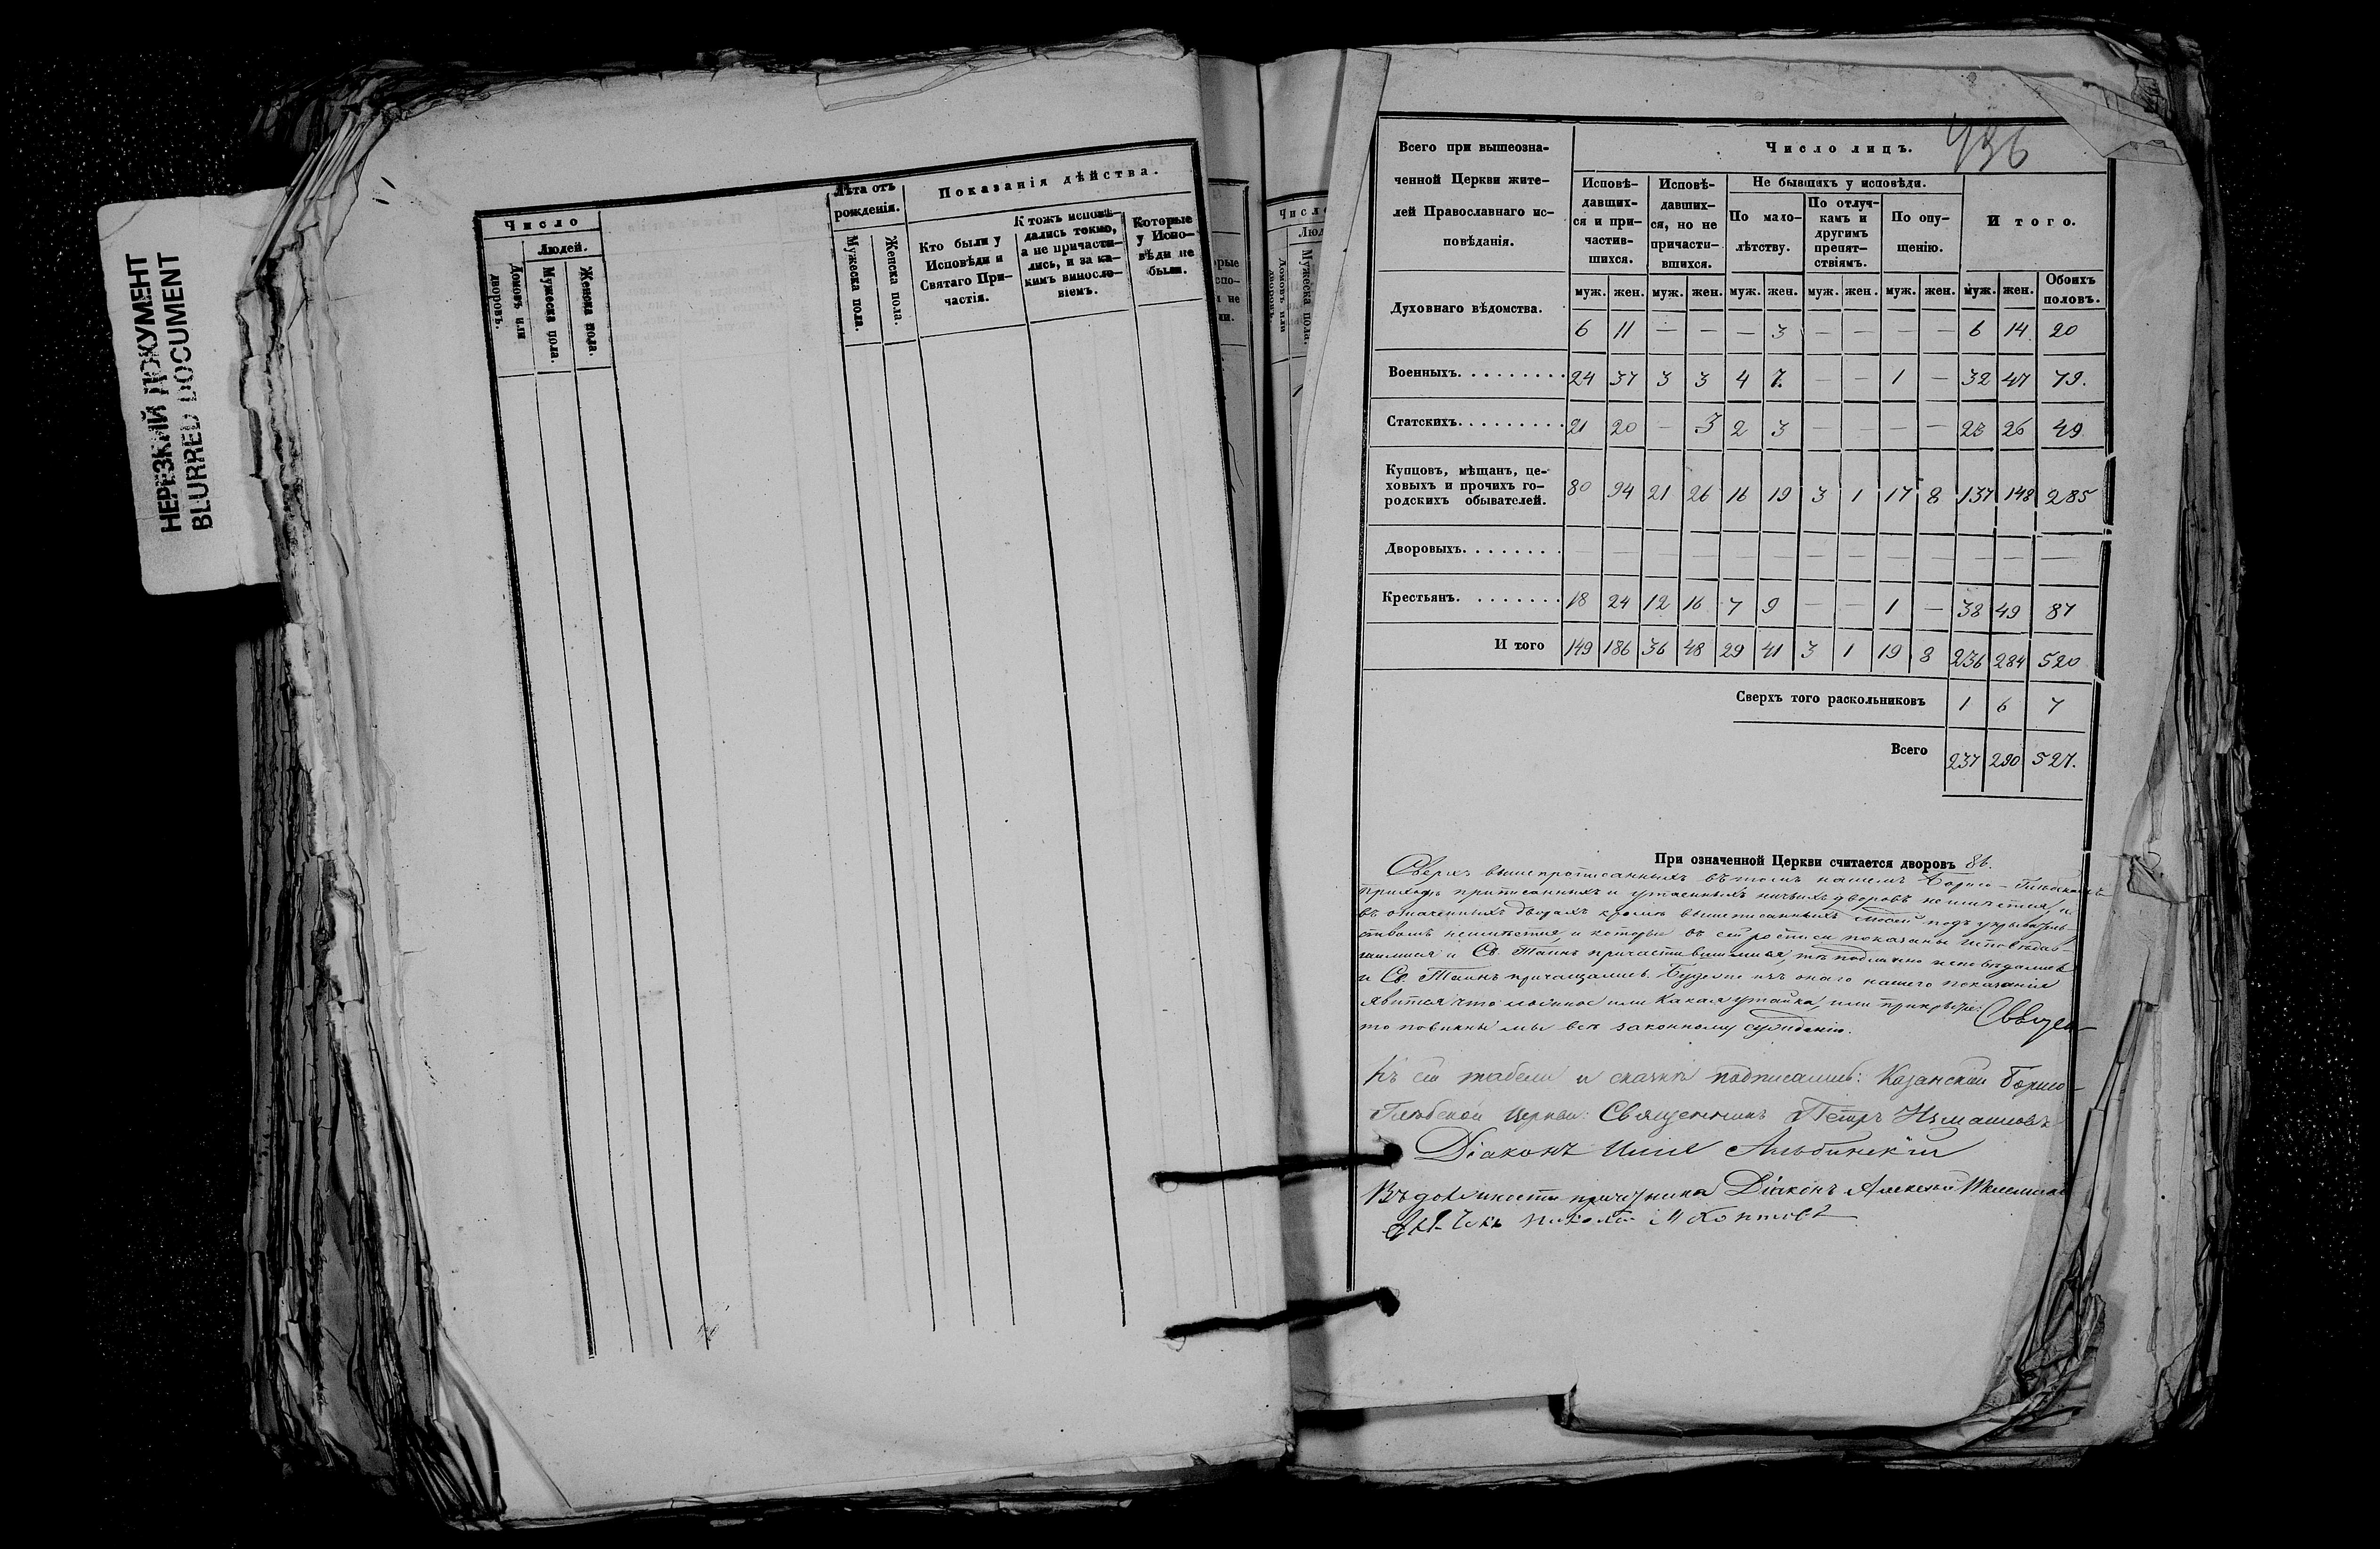 НЕРЕЗКИЙ ДОКУМЕНТ
BLURRED DOCUMENT
Число
Людей.
Домовъ или дворовъ.
Мужеска пола.
Женска пола.
Лѣта отъ рожденія.
Мужеска пола.
Женска пола.
Показанія дѣйства.
Кто были у
Исповѣди и
Святаго При-
частія.
К тожъ исповѣ-
дались токмо,
а не причасти-
лись, и за ка-
кимъ винословіемъ.
Которые
у Испо-
вѣди не
были.
436
Всего при вышеозна-
ченной Церкви жите-
лей Православнаго ис-
повѣданія.
Число лицъ.
Исповѣ-
давших-
ся и при-
частив-
шихся.
Исповѣ-
давших-
ся, но не
причасти-
вшихся.
Не бывшихъ у исповѣди.
По мало-
лѣтству.
По отлуч-
камъ и
другимъ
препят-
ствіямъ.
По опу-
щенію.
Итого.
муж. жен. муж. жен. муж. жен. муж. жен. муж. жен. муж. жен. Обоихъ половъ.
Духовнаго вѣдомства. 6 11 — — — 3 — — — — 6 14 20
Военныхъ. 24 37 3 3 4 7. — — 1 — 32 47 79.
Статскихъ. 21 20 — 3 2 3 — — — — 23 26 49
Купцовъ, мѣщанъ, це-
ховыхъ и прочихъ го-
родскихъ обывателей. 80 94 21 26 16 19 3 1 17 8 137 148 285
Дворовыхъ. — — — — — — — — — — — — —
Крестьянъ. 18 24 12 16 7 9 — — 1 — 38 49 87
И того 149 186 36 48 29 41 3 1 19 8 236 284 520
Сверхъ того раскольниковъ 1 6 7
Всего 237 290 527.
При означенной Церкви считается дворовъ 86.
Сверхъ вышепрописанныхъ въ томъ нашемъ Борисо-Глѣбскомъ
приходѣ приписанныхъ и утаенныхъ ничьихъ дворовъ не имѣется, и
въ означенныхъ дворахъ кромѣ вышеписанныхъ людей подъ укрыватель-
ствомъ неимѣется, и которые въ сей росписи показаны исповѣдав-
шимися и Св. Таинъ причастившимися, тѣ подлинно исповѣдались
и Св. Таинъ причащались. Буде же изъ онаго нашего показанія
явится что ложное или какая утайка, или прикрытіе:
то повинны мы всѣ законному сужденію.
Къ сей табели и сказкѣ подписались: Казанской Борисо-
Глѣбской Церкви: Священникъ Петръ
Діаконъ Илія Альбинскій
Въ должности причетника Діаконъ Алексѣй